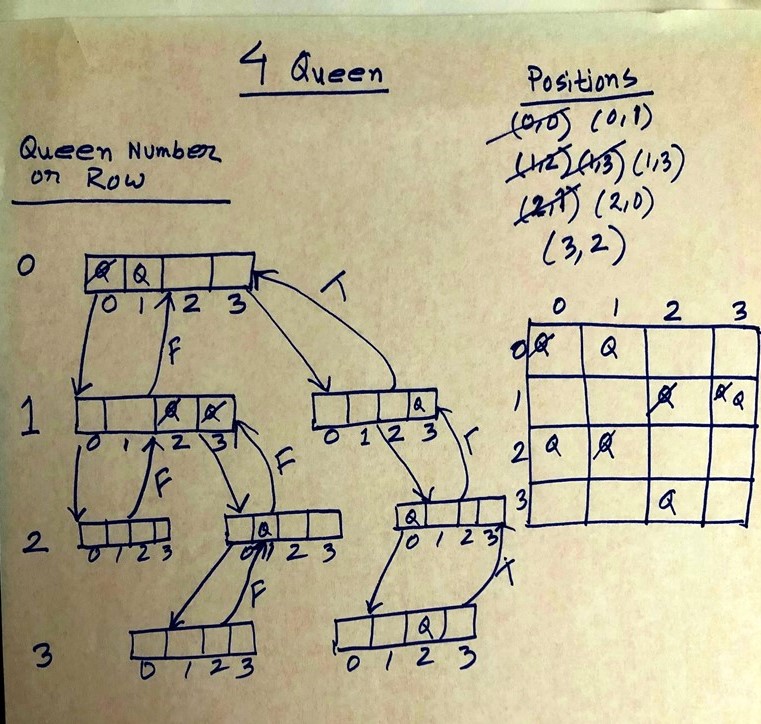 4 Queen
Positions
(0,0) (0,1)
(1,2) (1,3) (1,3)
(2,1) (2,0)
(3,2)
Queen Number
or Row
0
Q Q
0 1 2 3
F
T
1
Q Q
0 1 2 3
Q
0 1 2 3
F
F
T
2
0 1 2 3
Q
0 1 2 3
Q
0 1 2 3
F
T
3
0 1 2 3
Q
0 1 2 3
0 1 2 3
0 Q Q
1 Q Q Q
2 Q Q
3 Q